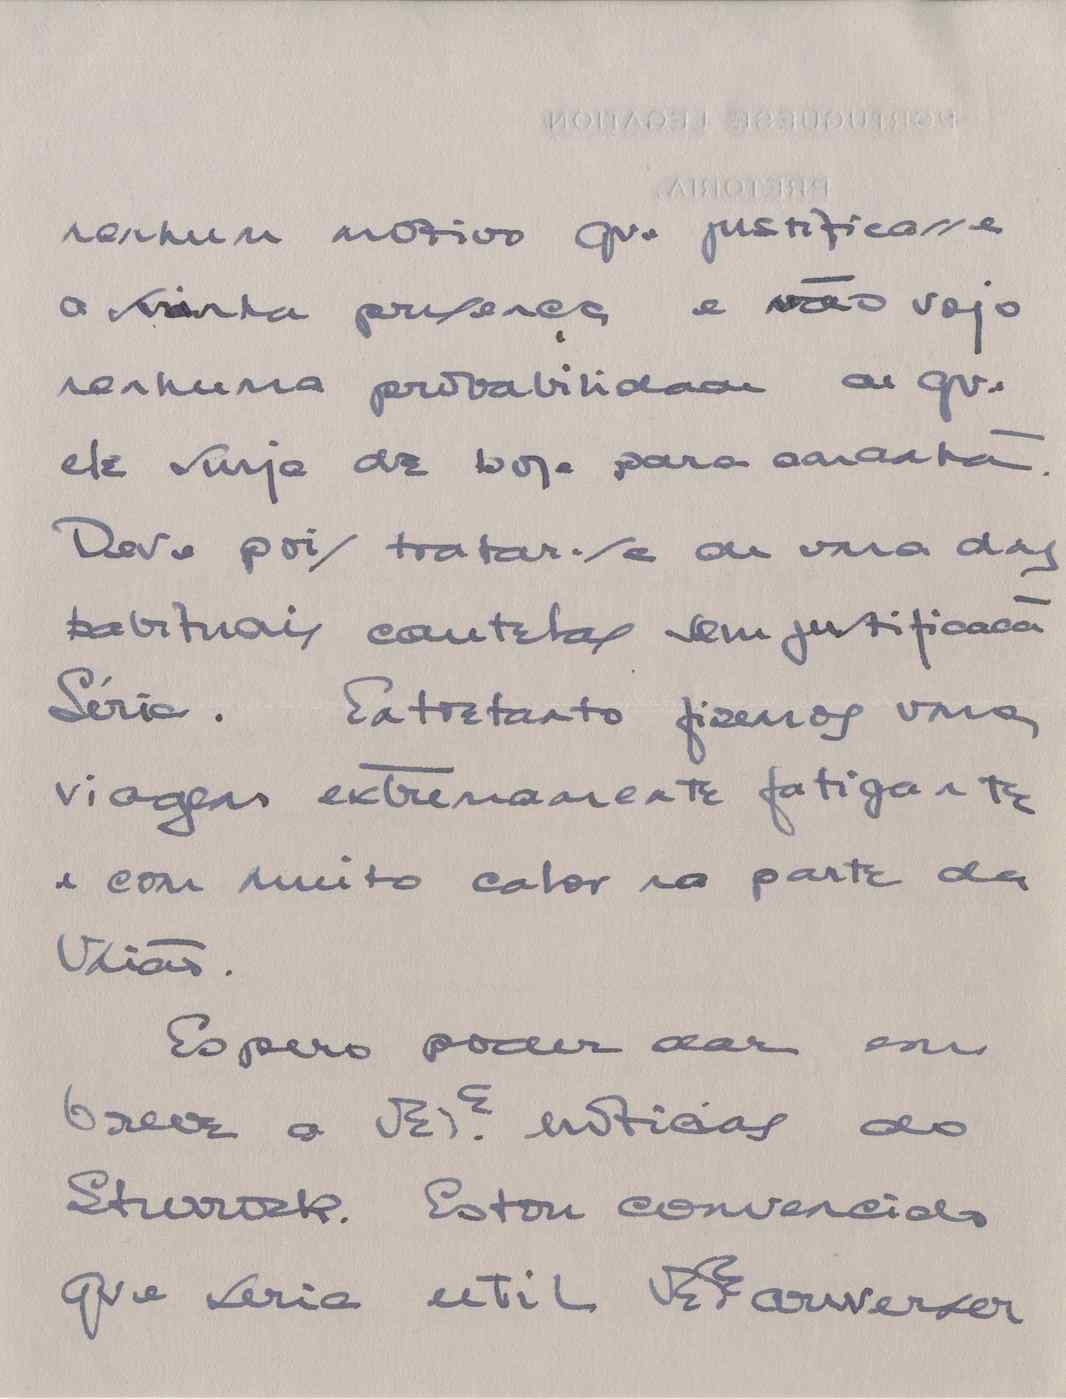 PORTUGUESE LEGATION
PRETORIA.
nenhum motivo que justificasse
a minha presença e não vejo
nenhuma probabilidade de que
ele surja de hoje para amanhã.
Deve pois tratar-se de uma das
habituais cautelas sem justificacã
Séria. Entretanto fizemos uma
viagem extremamente fatigante
e com muito calor na parte da
União.
Espero poder dar em
breve a V. Ex.ª notícias do
Sturrock. Estou convencido
que seria util V. Ex.ª conversar